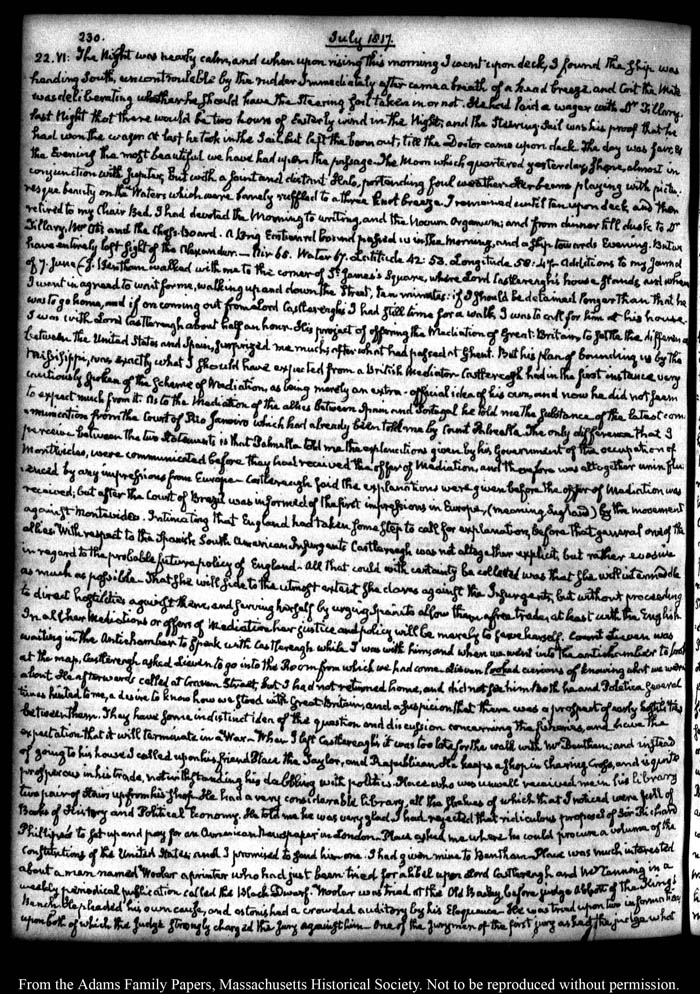 230.
July 1817.
22. VI: The Night was nearly calm, and when upon rising this morning I went upon deck, I found the Ship was
heading South, uncontroulable by the rudder. Immediately after came a breath of a head breeze, and Cort the Mate
was deliberating whether he should have the Steering Sail taken in or not. He had laid a wager with Dr Tillary,
last Night that there would be two hours of Easterly wind in the Night; and the Steering Sail was his proof that he
had won the wager. At last he took in the Sail but left the boom out, till the Doctor came upon deck. The day was fair, &
the Evening the most beautiful we have had upon the passage. The Moon which quartered yesterday, shone, almost in
conjunction with Jupiter, but with a faint and distant Halo, portending foul weather. Her beams playing with pictu-
resque beauty on the Waters which were barely ruffled to a three knot breeze. I remained until ten upon deck, and then
retired to my Chair Bed. I had devoted the Morning to writing, and the Novum Organum; and from dinner till dusk to Dr
Tillary, Mr Otis and the Chess-Board. A Brig Eastward bound passed us in the morning, and a ship towards Evening. But we
have entirely lost sight of the Alexander. — Air 68. Water 67. Latitude 42: 53. Longitude. 58: 47. Additions to my Journal
of 7. June. (J. Bentham walked with me to the corner of St James's Square, where Lord Castlereagh's house stands, and when
I went in agreed to wait for me, walking up and down the Street, ten minutes: if I should be detained longer than that he
was to go home, and if on coming out from Lord Castlereagh's I had still time for a walk, I was to call for him at his house.
I was with Lord Castlereagh about half an hour. His project of offering the Mediation of Great-Britain, to settle the differences
between the United States and Spain, surprized me much, after what had passed at Ghent. But his plan of bounding us by the
Mississippi, was exactly what I should have expected from a British Mediator. Castlereagh had in the first instance very
cautiously spoken of the Scheme of Mediation, as being merely an extra-official idea of his own, and now he did not seem
to expect much from it. As to the Mediation of the allies between Spain and Portugal he told me the substance of the latest com-
munication from the Court of Rio Janeiro which had already been told me by Count Palmella. The only difference that I
perceive between the two Statements is that Palmella told me the explanations given by his Government of the occupation of
Montevideo, were communicated before they had received the offer of Mediation, and therefore was altogether uninflu-
enced by any impressions from Europe — Castlereagh said the explanations were given before the offer of Mediation was
received; but after the Court of Brazil was informed of the first impressions in Europe, (meaning England) by the movement
against Montevideo. Intimating that England had taken some step to call for explanation, before that general one of the
allies. With respect to the Spanish South American Insurgents Castlereagh was not altogether explicit, but rather evasive
in regard to the probable future policy of England. All that could with certainty be collected was that she will intermeddle
as much as possible. That she will side to the utmost extent she dares against the Insurgents, but without proceeding
to direct hostilities against them, and serving herself by urging Spain to allow them a free trade, at least with the English.
In all her Mediations or offers of Mediation her justice and policy will be merely to serve herself. Count Lieven was
waiting in the Antichamber to speak with Castlereagh while I was with him; and when we went into the antichamber to look
at the map, Castlereagh asked Lieven to go into the Room from which we had come. Lieven looked curious of knowing what we were
about. He afterwards called at Craven Street, but I had not returned home, and did not see him. Both he and Poletica several
times hinted to me, a desire to know how we stood with Great Britain, and a suspicion that there was a prospect of early hostilities
between them. They have some indistinct idea of the question and discussion concerning the fisheries, and have the
expectation that it will terminate in a War. When I left Castlereagh's it was too late for the walk with Mr Bentham; and instead
of going to his house I called upon his friend Place the Taylor, and Republican. He keeps a shop in Charing Cross, and is quite
prosperous in his trade, notwithstanding his dabbling with politics. Place who was unwell received me in his library
two pair of stairs up from his shop. He had a very considerable library, all the shelves of which that I noticed were full of
Books of History and Political Economy. He told me he was very glad I had rejected that ridiculous proposal of Sir Richard
Phillips's to set up and pay for an American Newspaper in London. Place asked me where he could procure a volume of the
Constitutions of the United States, and I promised to send him one. I had given mine to Bentham. Place was much interested
about a man named Wooler a printer who had just been tried for a libel upon Lord Castlereagh and Mr Canning in a
weekly periodical publication called the Black Dwarf. Wooler was tried at the Old Bailey, before judge Abbott of the King's
Bench. He pleaded his own cause, and astonished a crowded auditory by his Eloquence. He was tried upon two informations
upon both of which the judge strongly charged the Jury against him. One of the jurymen of the first jury asked the judge what
From the Adams Family Papers, Massachusetts Historical Society. Not to be reproduced without permission.